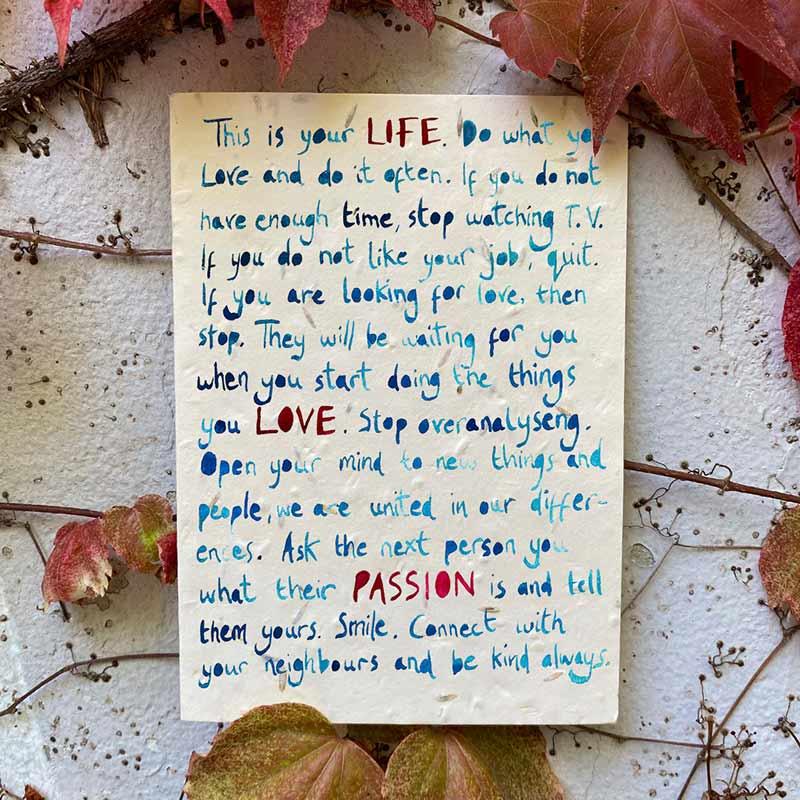 This is your LIFE. Do what you
Love and do it often. If you do not
have enough time, stop watching T.V.
If you do not like your job, quit.
If you are looking for love, then
stop. They will be waiting for you
when you start doing the things
you LOVE. Stop overanalyseng.
Open your mind to new things and
people, we are united in our differ-
ences. Ask the next person you
what their PASSION is and tell
them yours. Smile. Connect with
your neighbours and be kind always.